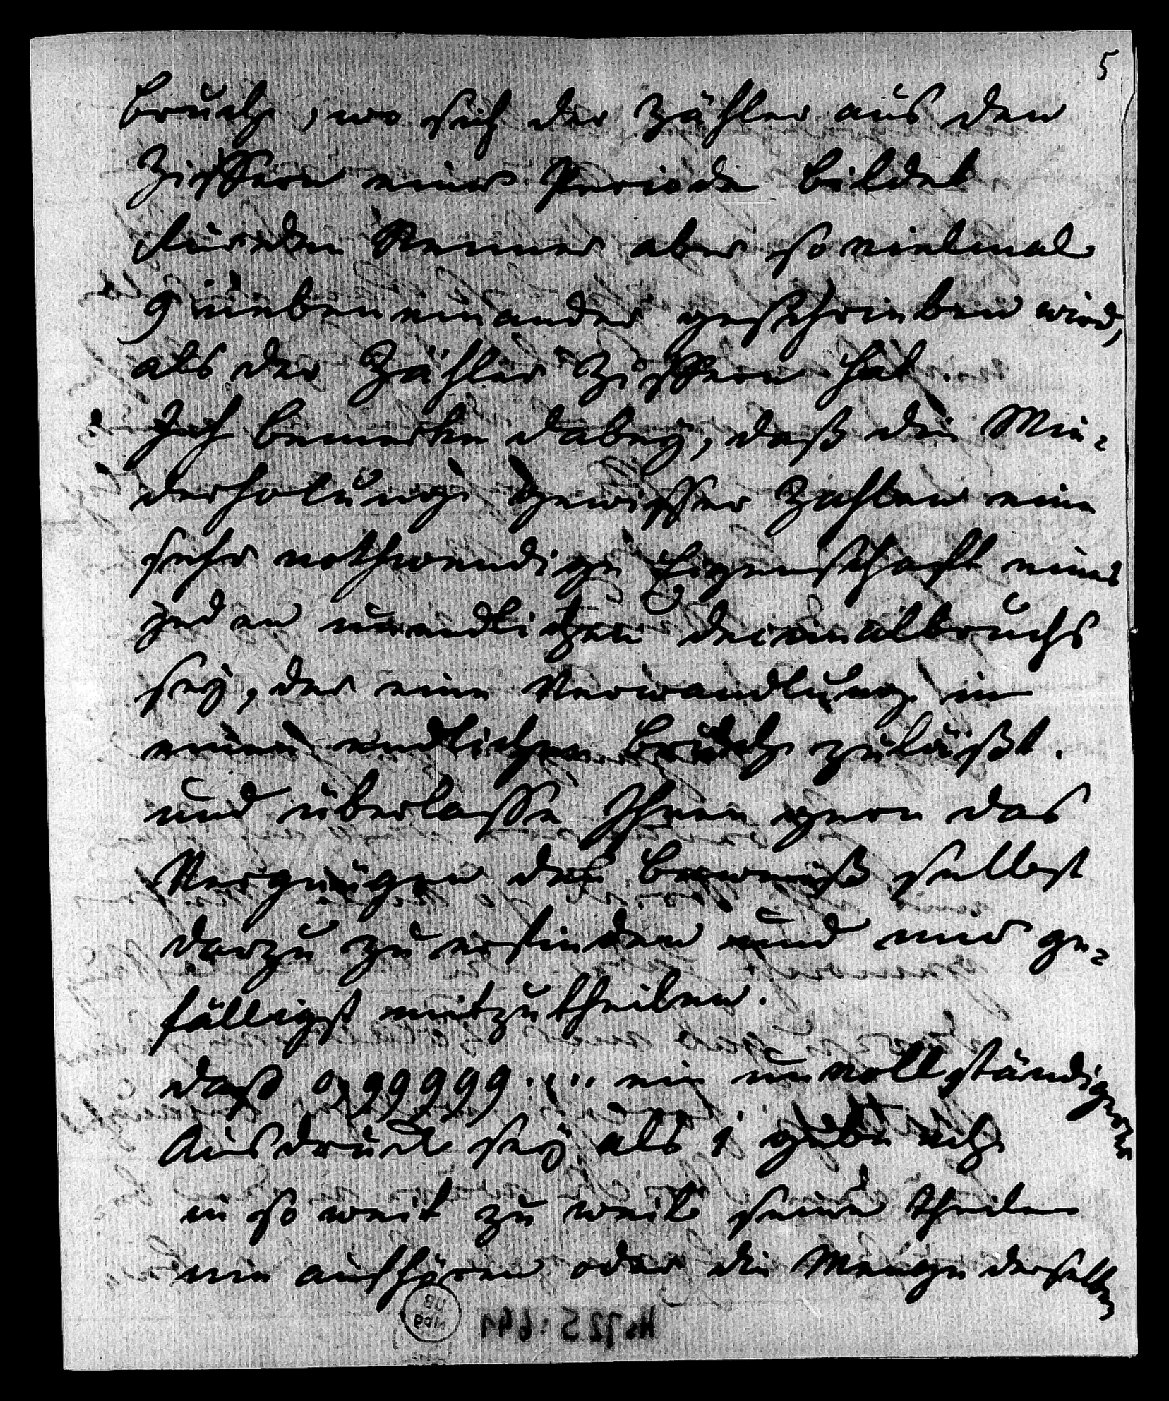 5
bruch, wo sich der Zähler aus den
Ziffern einer Periode bildet
für den Nenner aber so vielmal
9 nebeneinander geschrieben wird,
als der Zähler Ziffern hat.
Ich bemerke dabey, daß die Wie-
derholung gewisser Zahlen eine
sehr nothwendige Eigenschaft eines
jeden unendlichen Decimalbruchs
sey, der eine Verwandlung in
einen endlichen Bruch zuläßt.
und überlasse Ihnen gern das
Vergnügen den Beweiß selbst
darzu zu erfinden und mir ge-
fälligst mitzutheilen.
daß 0,99999..... ein unvollständigerer
Ausdruck sey als 1 gebe ich
in so weit zu weil seine Theile
nie aufhören oder die Menge derselben